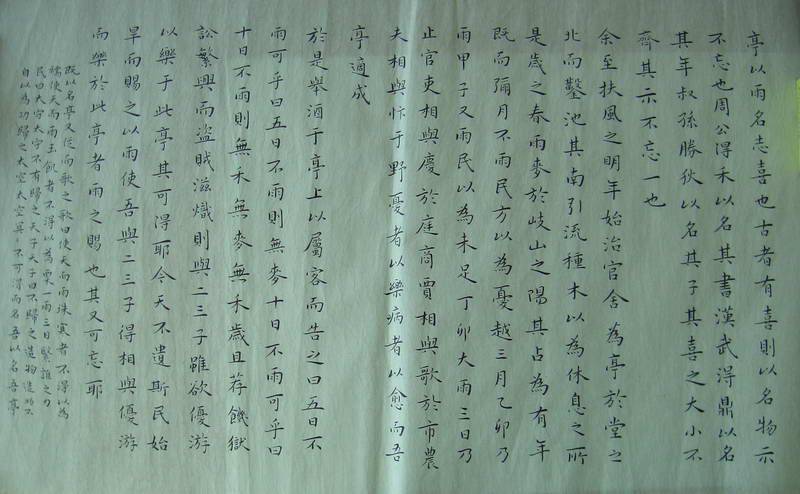 亭以雨名志喜也古者有喜則以名物示
不忘也周公得禾以名其書漢武得鼎以名
其年叔孫勝狄以名其子其喜之大小不
齊其示不忘一也
余至扶風之明年始治官舍為亭於堂之
北而鑿池其南引流種木以為休息之所
是歲之春雨麥於岐山之陽其占為有年
既而彌月不雨民方以為憂越三月乙卯乃
雨甲子又雨民以為未足丁卯大雨三日乃
止官吏相與慶於庭商賈相與歌於市農
夫相與忭于野憂者以樂病者以愈而吾
亭適成
於是舉酒于亭上以屬客而告之曰五日不
雨可乎曰五日不雨則無麥十日不雨可乎曰
十日不雨則無禾無麥無禾歲且荐饑獄
訟繁興而盜賊滋熾則與二三子雖欲優游
以樂于此亭其可得耶今天不遺斯民始
旱而賜之以雨使吾與二三子得相與優游
而樂於此亭者雨之賜也其又可忘耶
既以名亭又從而歌之歌曰使天而雨珠寒者不得以為
襦使天而雨玉飢者不得以為粟一雨三日繄誰之力
民曰太守太守不有歸之天子天子曰不歸之造物造物不
自以為功歸之太空太空冥冥不可得而名吾以名吾亭